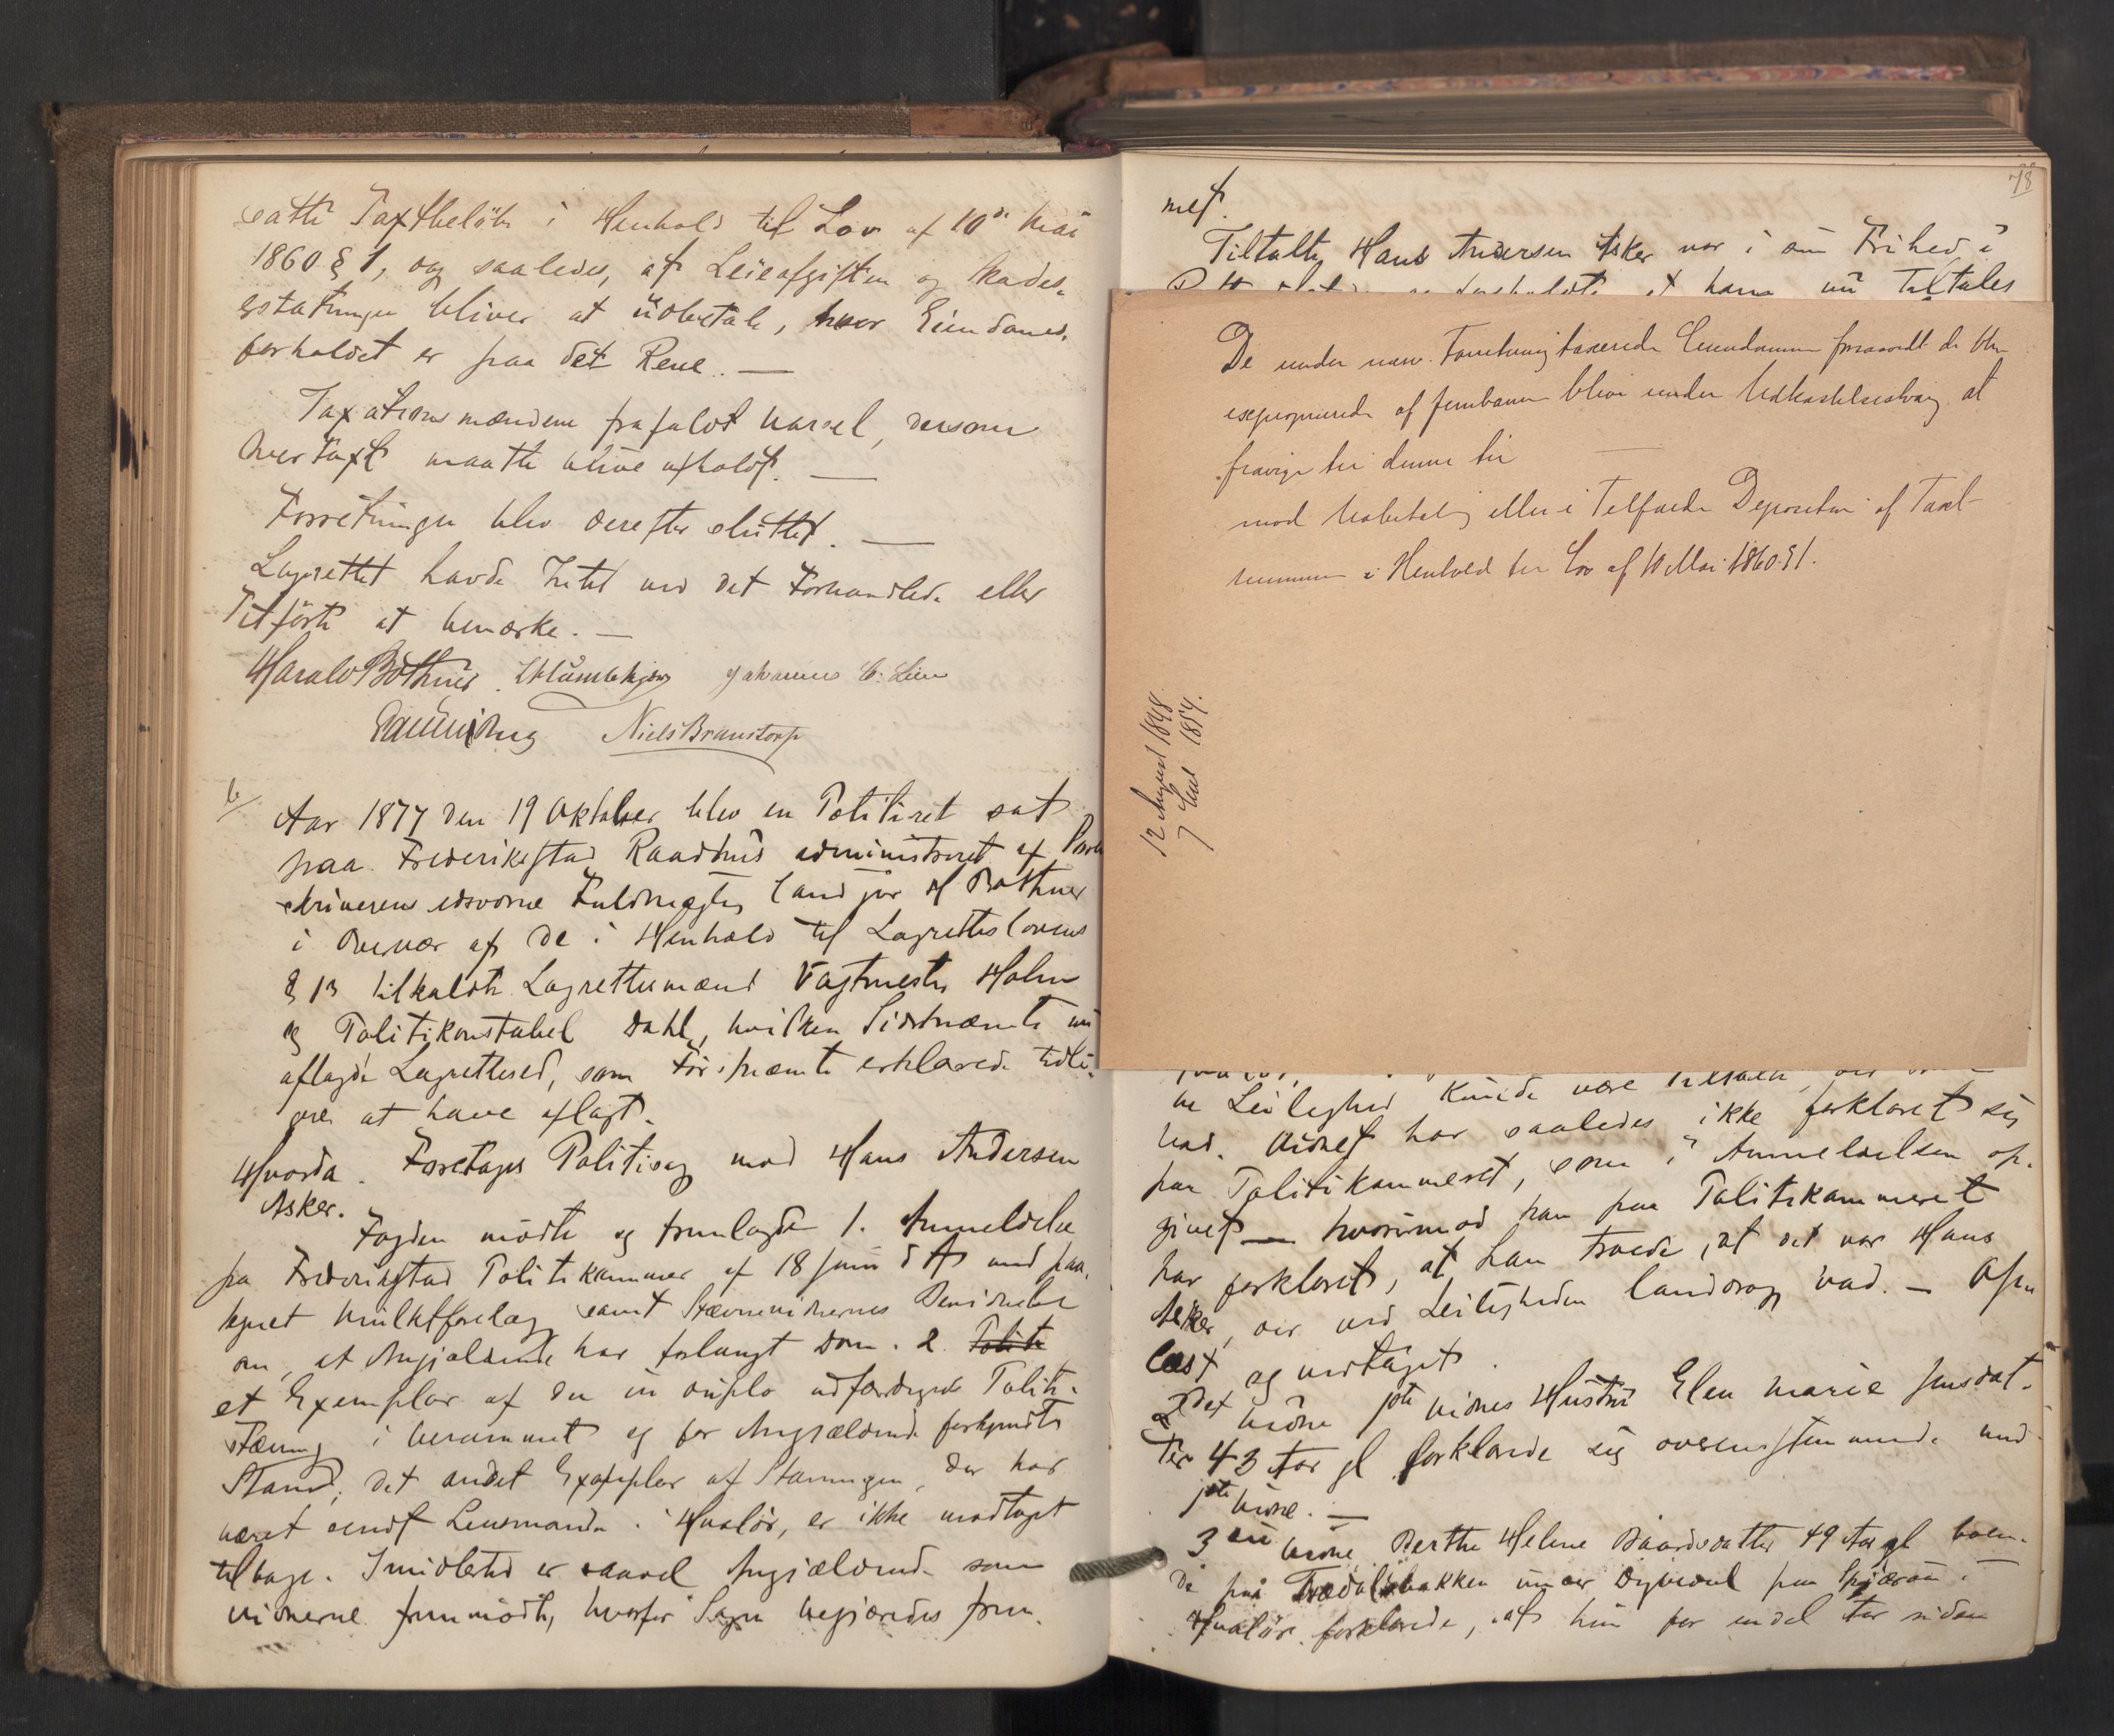 satte Taxtbeløb i Henhold til Lov af 10de Mai
1860 § 1, og saaledes, at Leieafgiften og Skades-
erstatninger bliver at udbetale, hvor Eiendoms-
forholdet er paa det Rene. —
Taxationsmændene frafaldt Varsel, dersom
Overtaxt maatte blive afholdt. —
Forretningen blev derefter sluttet. —
Lagrettet havde Intet ved det Forhandlede eller
Tilførte at bemærke. —
Harald Bothner. Johannes C. Lien
Niels Branstorp
6/
Aar 1877 den 19 Oktober blev en Politiret sat
paa Frederikstad Raadhus administreret af
skriverens edsvorne Fuldmægtig Cand jur H Bothner
i Overvær af de i Henhold til Lagretteslovens
§ 13 tilkaldte Lagrettesmænd Vagtmester Holm
og Politikonstabel Dahl, hvilken Sidstnævnte nu
aflagde Lagrettesed, som Førstnævnte erklærede tidli-
gere at have aflagt.
Hvorda. Foretages Politisag mod Hans Andersen
Asker.
Fogden mødte og fremlagde 1. Anmeldelse
fra Frederikstad Politikammer af 18 Juni d A med paa-
tegnet Mulktforelæg samt Stævnevidnernes Bevidnelse
om, at Angjældende har forlangt Dom. 2. Politi
et Exemplar af den in duplo udfærdigede Politi-
stævning i berammet og for Angjældende forkyndt
Stand; det andet Exemplar af Stævningen, der har
været sendt Lensmanden i Hvalør, er ikke modtaget
tilbage. Imidlertid er saavel Angjældende som
Vidnerne fremmødt, hvorfor Sagen begjæredes frem-
78
met.
Tiltalte Hans Andersen Asker var i sin Frihed i
at hans nu Tiltales
De under nærv. Forretning taxerede Eiendomme forsaavidt de bli
exproprierede af Jernbanen bliver under Udkastelsestvang at
fravige til denne til
mod Udbetaling eller i Tilfælde Deposition af Taxt-
summen i Henhold til Lov af 10 Mai 1860 § 1.
12 August 1848
7 1854.
ne Leilighed kunde være tilstæde,
Vad. Vidnet har saaledes ikke forklaret sig
paa Politikammeret, som i Anmeldelsen op-
givet — hvorimod han paa Politikammeret
har forklaret, at han troede, at det var Hans
Asker, der ved Leiligheden landdrog Vad. — Op-
læst og vedtaget.
2det Vidne 1ste Vidnes Hustru Elen Marie Jensdat-
ter 43 Aar gl forklarede sig overensstemmende med
1ste Vidne. —
3die Vidne Berthe Helene Baardsdatter 49 Aar gl boen-
de paa under Dypedal paa Spjærøen i
Hvalør forklarede, at hun for endel Aar siden